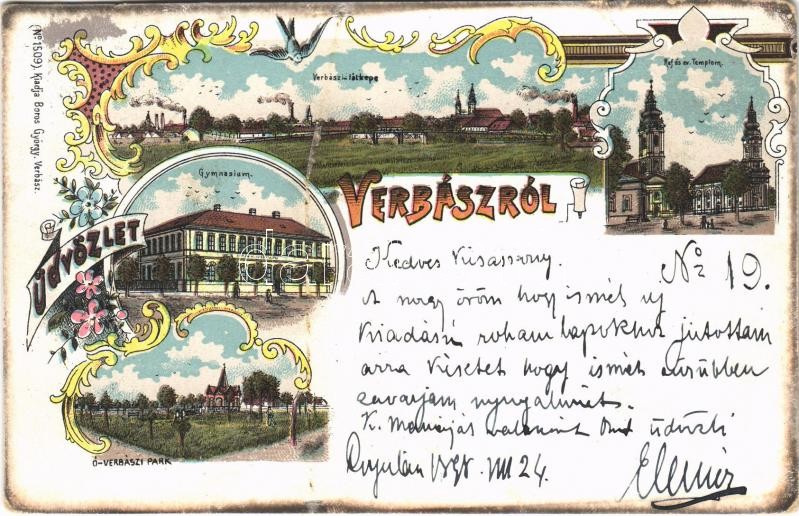 (No 1509.) Kiadja Boros György, Verbász.
Verbászi látképe
Ref és ev. Templom.
Gymnasium.
VERBÁSZRÓL
ÜDVÖZLET
Ó-VERBÁSZI PARK
Kedves Kisasszony. No 19.
A nagy öröm hogy ismét uj
kiadású lapokhoz jutottam
arra késztet hogy ismét
zavarjam nyugalmát.
K. Mamáját valamint Önt üdvözli
1898. VIII 24. Elemér